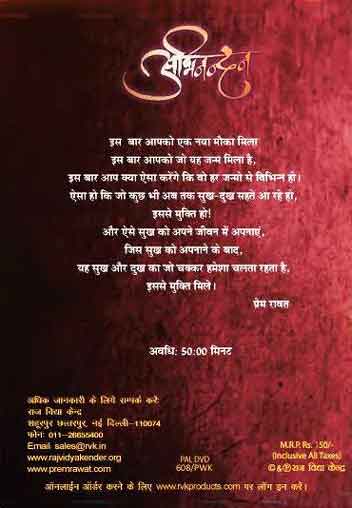 अभिनन्दन
इस बार आपको एक नया मौका मिला
इस बार आपको जो यह जन्म मिला है,
इस बार आप क्या ऐसा करेंगे कि वो हर जन्मो से विभिन्न हो।
ऐसा हो कि जो कुछ भी अब तक सुख-दुख सहते आ रहे हो,
इससे मुक्ति हो!
और ऐसे सुख को अपने जीवन में अपनाएं,
जिस सुख को अपनाने के बाद,
यह सुख और दुख का जो चक्कर हमेशा चलता रहता है,
इससे मुक्ति मिले।
प्रेम रावत
अवधि: 50:00 मिनट
अधिक जानकारी के लिये सम्पर्क करें:
राज विद्या केन्द्र
शहूरपुर छत्तरपुर, नई दिल्ली-110074
फोन: 011-26655400
Email: sales@rvk.in
www.rajvidyakender.org
www.premrawat.com
PAL DVD
608/PWK
M.R.P. Rs. 150/-
(Inclusive All Taxes)
©&℗राज विद्या केन्द्र
ऑनलाईन ऑर्डर करने के लिए www.rvkproducts.com पर लॉग इन करें।